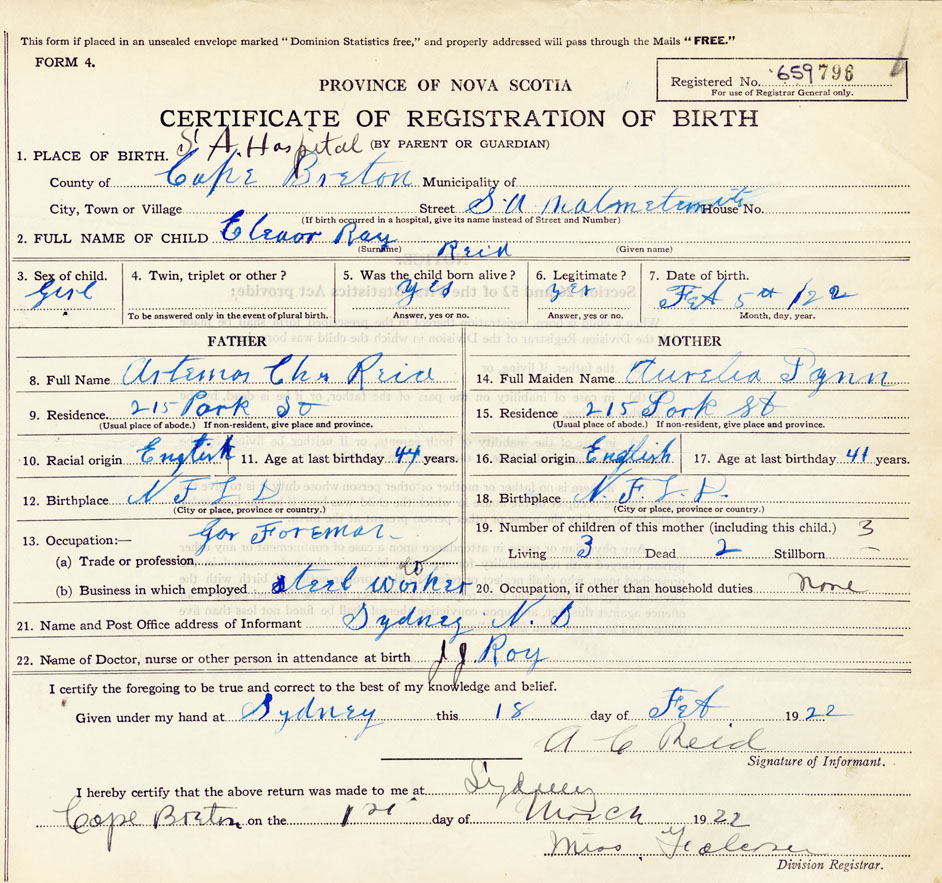 This form if placed in an unsealed envelope marked “Dominion Statistics free,” and properly addressed will pass through the Mails “FREE.”
FORM 4.
PROVINCE OF NOVA SCOTIA
Registered No. 659 796
For use of Registrar General only.
CERTIFICATE OF REGISTRATION OF BIRTH
S A Hospital (BY PARENT OR GUARDIAN)
1. PLACE OF BIRTH.
County of Cape Breton Municipality of
City, Town or Village Street S.A House No.
(If birth occurred in a hospital, give its name instead of Street and Number)
2. FULL NAME OF CHILD Eleanor Ray Reid
(Surname) (Given name)
3. Sex of child. 4. Twin, triplet or other? 5. Was the child born alive? 6. Legitimate? 7. Date of birth.
Girl yes yes Feb 5th /22
To be answered only in the event of plural birth. Answer, yes or no. Answer, yes or no. Month, day, year.
FATHER MOTHER
8. Full Name Artemas Chas Reid 14. Full Maiden Name Aurelia Pynn
9. Residence. 215 Park St 15. Residence 215 Park St
(Usual place of abode.) If non-resident, give place and province. (Usual place of abode.) If non-resident, give place and province.
10. Racial origin English 11. Age at last birthday 44 years. 16. Racial origin English 17. Age at last birthday 41 years.
12. Birthplace N F L D 18. Birthplace N. F. L. D.
(City or place, province or country.) (City or place, province or country.)
13. Occupation:— Gas Foreman 19. Number of children of this mother (including this child.) 3
(a) Trade or profession Living 3 Dead 2 Stillborn –
(b) Business in which employed Steel Worker 20. Occupation, if other than household duties none
21. Name and Post Office address of Informant Sydney N. S
22. Name of Doctor, nurse or other person in attendance at birth J J. Roy
I certify the foregoing to be true and correct to the best of my knowledge and belief.
Given under my hand at Sydney this 18 day of Feb 1922
A C Reid
Signature of Informant.
I hereby certify that the above return was made to me at Sydney
Cape Breton on the 1st day of March 1922
Miss
Division Registrar.